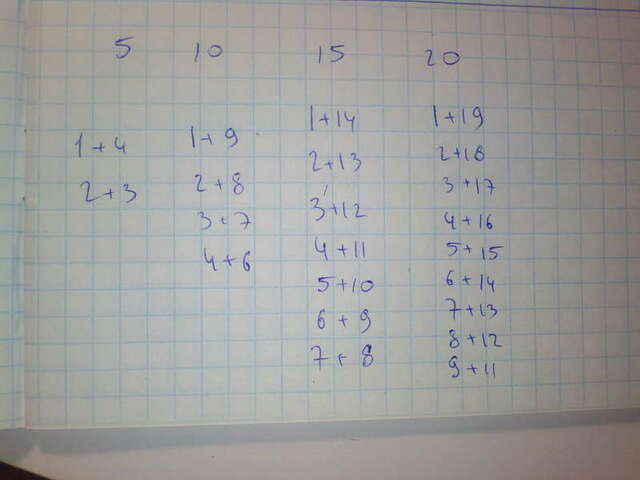 5 10 15 20
1+4
2+3
1+9
2+8
3+7
4+6
1+14
2+13
3+12
4+11
5+10
6+9
7+8
1+19
2+18
3+17
4+16
5+15
6+14
7+13
8+12
9+11